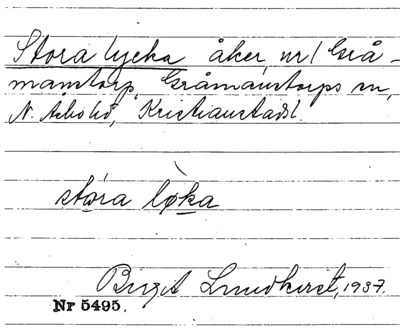 Stora lycka åker nr 1 Grå-
mamstorp, Gråmanstorps sn,
N. Åsbo hd, Kristianstads l.
stora løka
Birgit Lundkvist, 1937.
Nr 5495.